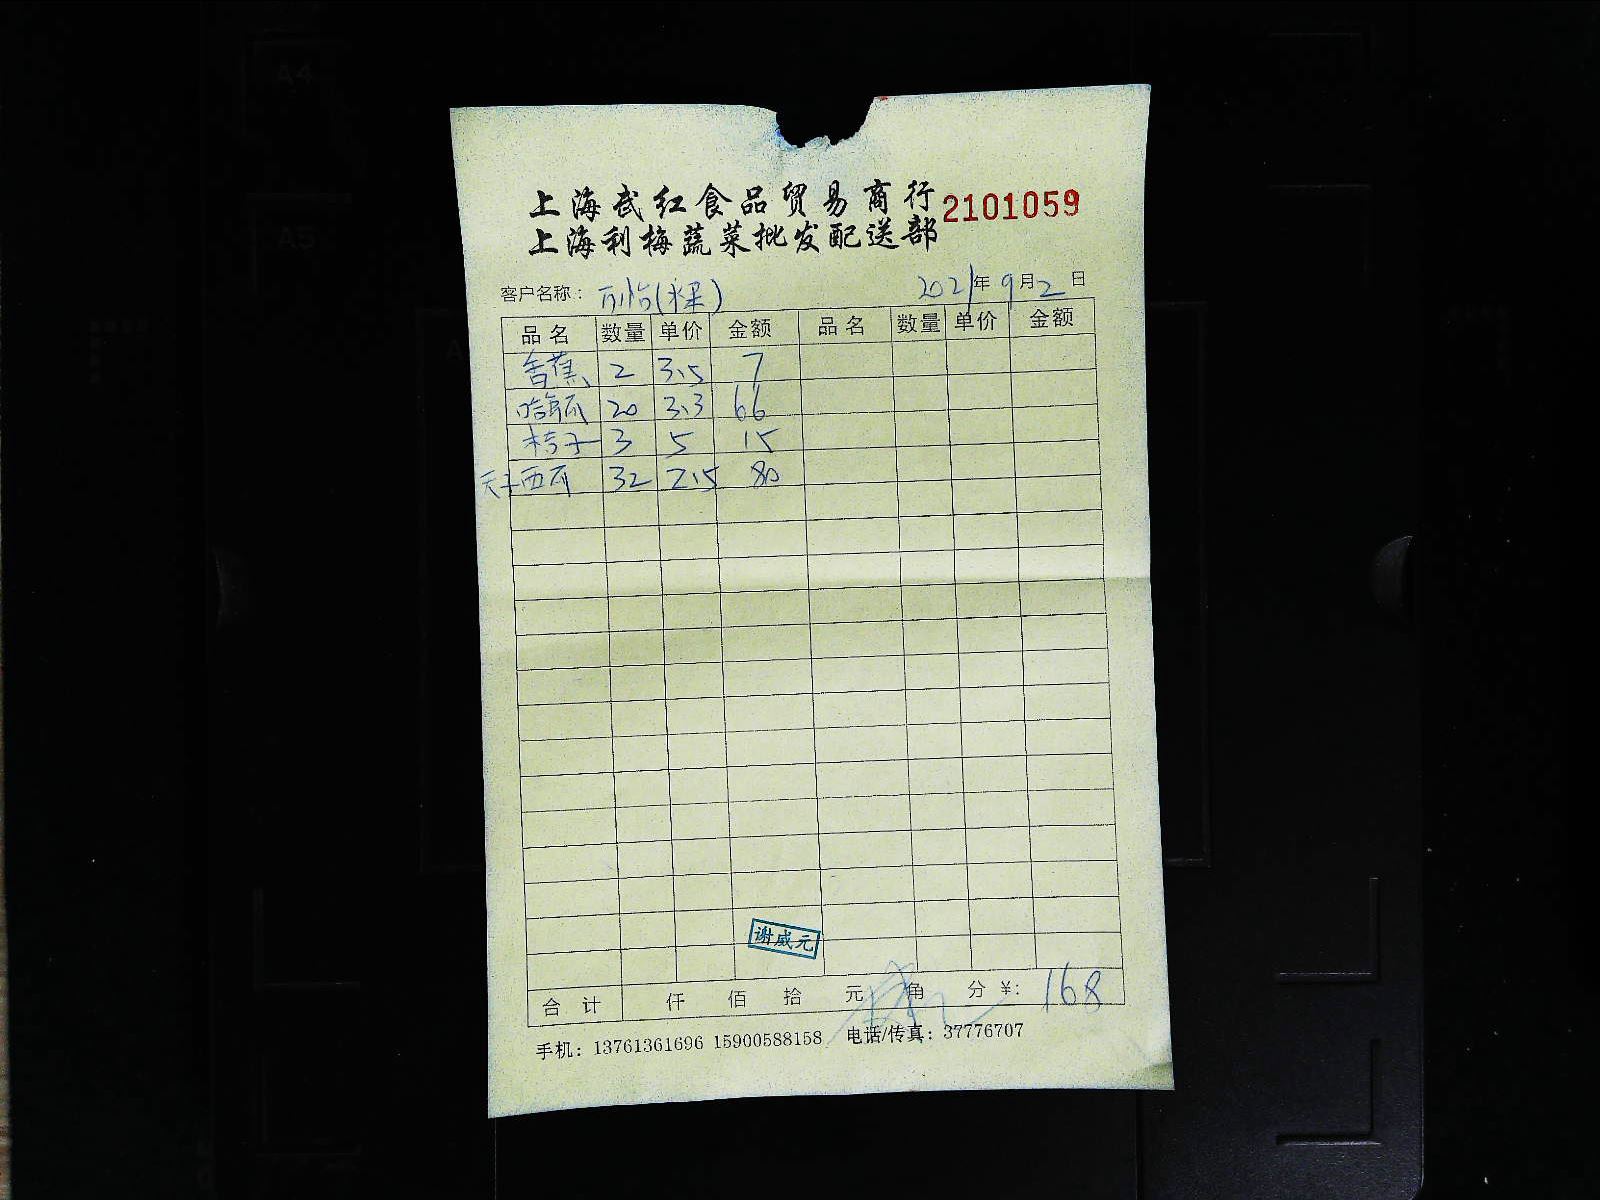 上海武红食品贸易商行 2101059
上海利梅蔬菜批发配送部
客户名称： 2021年9月2日
品名 数量 单价 金额 品名 数量 单价 金额
香蕉 2 3.5 7
哈蜜瓜 20 3.3 66
桔子 3 5 15
西瓜 32 2.5 80
谢威元
合计 仟 佰 拾 元 角 分 ¥: 168
手机：13761361696 15900588158 电话/传真：37776707